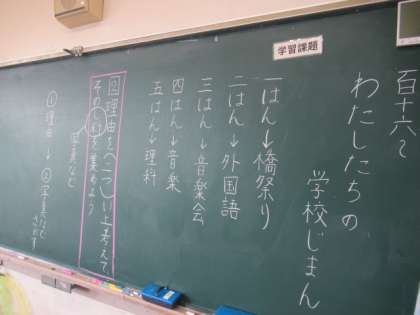 学習課題
百十六〜
わたしたちの
学校じまん
一はん→橋祭り
二はん→外国語
三はん→音楽会
四はん→音楽
五はん→理科
理由を二つい上考えて、
そのしりょうを集めよう
写真など
①理由→②写真など
さがす